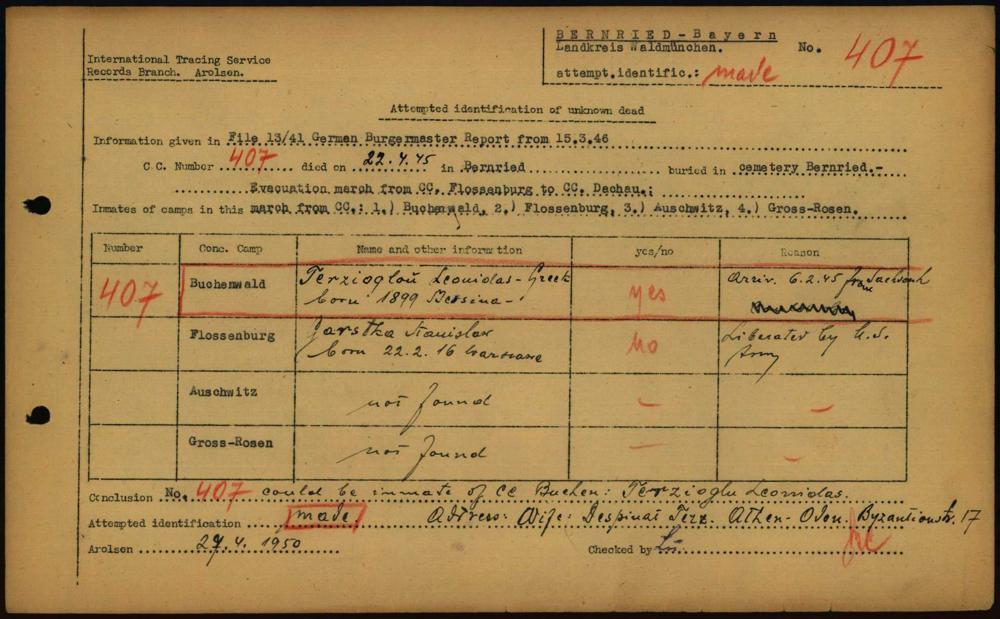 BERNRIED-Bayern
Landkreis Waldmünchen. No. 407
International Tracing Service
Records Branch. Arolsen.
attempt.identific.: made
Attempted identification of unknown dead
Information given in File 13/41 German Burgermaster Report from 15.3.46
C.C. Number 407 died on 22.4.45 in Bernried buried in cemetery Bernried.-
Evacuation march from CC. Flossenburg to CC. Dachau.:
Inmates of camps in this march from CC.: 1.) Buchenwald, 2.) Flossenburg, 3.) Auschwitz, 4.) Gross-Rosen.
Number Conc. Camp Name and other information yes/no Reason
407 Buchenwald Terzioglou Leonidas - Greek yes Arriv. 6.2.45 from Sachsenh
born 1899 Bessina -
Flossenburg Jarstka Stanislaw no Liberated by U.S.
born 22.2.16 Warszawa Army
Auschwitz not found – –
Gross-Rosen not found – –
Conclusion No. 407 could be inmate of CC Buchen: Terzioglu Leonidas.
Attempted identification made. Address: Wife: Despinat Terz. Athen-Oden. Byzantionstr. 17
Arolsen 27.4.1950 Checked by